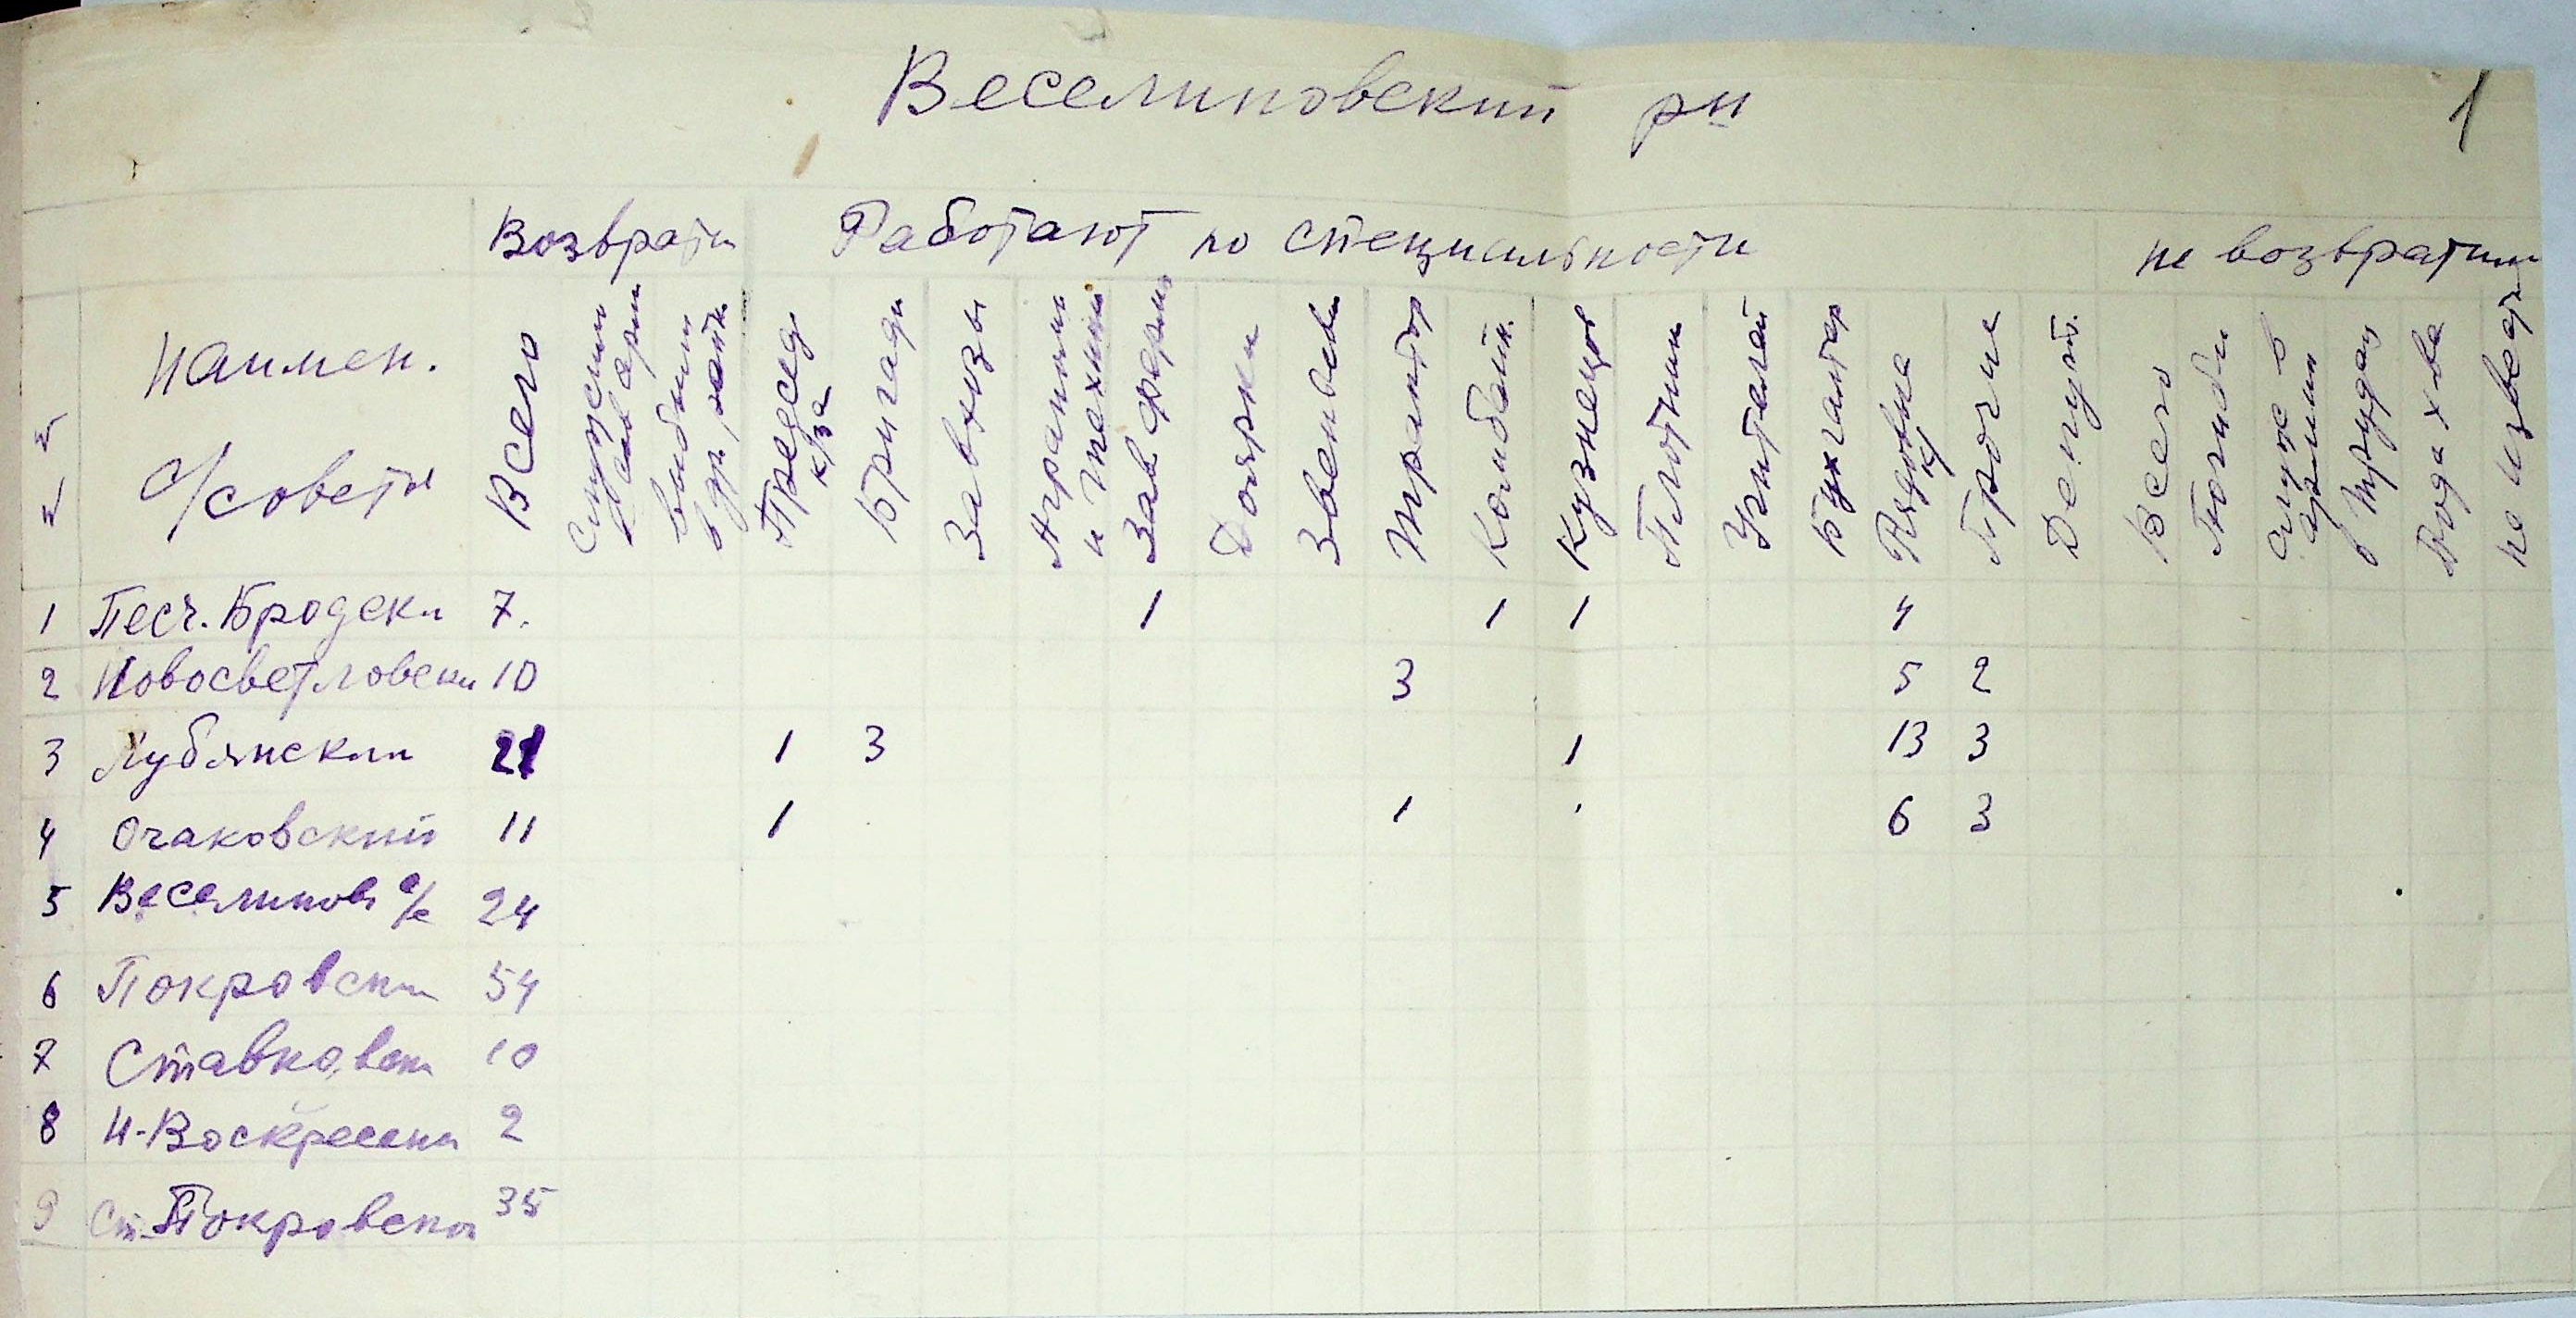 Веселиновский рн
1
Возврати Работают по специальности не возвратил
№ №
Наимен.
с/совета
Всего
Служили в Сов арм
выбыли в др.
Председ к/за
Бригади
Завхозы
Аграном и техники
Зав фермы
Доярки
Звеньеви
Трактор
Комбайн.
Кузнецов
Плотник
Учителей
Бухгалтер
Рядовые
Прочие
Депутт.
Всего
Погибли
служ в армии
в трудах
не извест
1 Песч. Бродски 7. 1 1 1 4
2 Новосветловски 10 3 5 2
3 Лубянский 21 1 3 1 13 3
4 Очаковский 11 1 1 6 3
5 Веселинов с/с 24
6 Покровски 54
7 Ставковски 10
8 Н-Воскресенск 2
9 Ст. Покровски 35